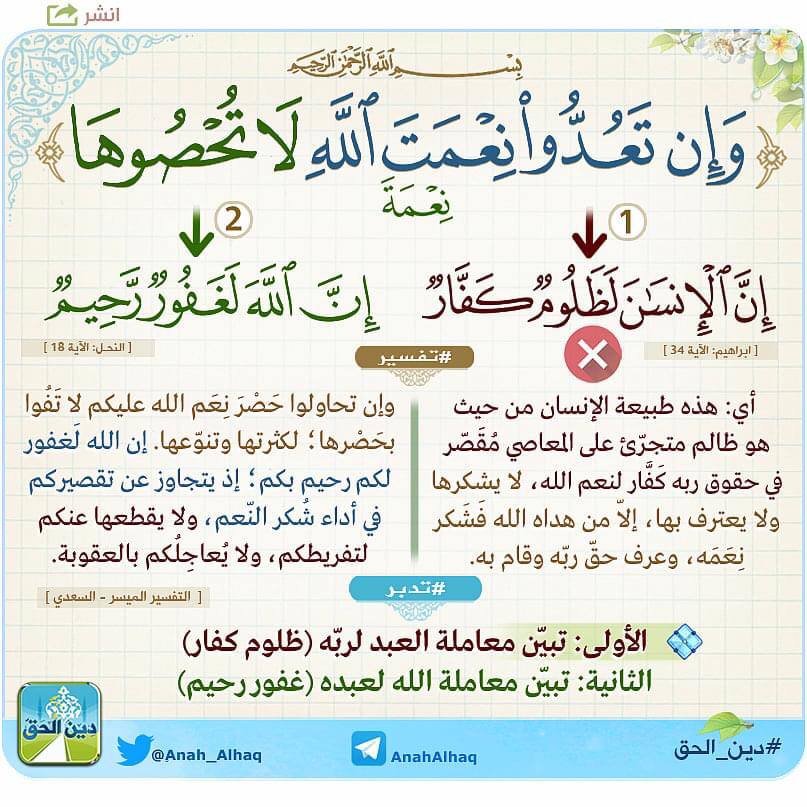 انشر
بِسْمِ اللَّهِ الرَّحْمَٰنِ الرَّحِيمِ
﴿ وَإِن تَعُدُّواْ نِعۡمَتَ ٱللَّهِ لَا تُحۡصُوهَا ﴾
نِعۡمَةَ
1
إِنَّ ٱلۡإِنسَٰنَ لَظَلُومٞ كَفَّارٞ
[ ابراهيم: الآية 34 ]
2
إِنَّ ٱللَّهَ لَغَفُورٞ رَّحِيمٞ
[ النحل: الآية 18 ]
#تفسير
أي: هذه طبيعة الإنسان من حيث
هو ظالم متجرّئ على المعاصي مُقَصّر
في حقوق ربه كَفَّار لنعم الله، لا يشكرها
ولا يعترف بها، إلاّ من هداه الله فَشَكر
نِعَمَه، وعرف حقّ ربّه وقام به.
وإن تحاولوا حَصْرَ نِعَم الله عليكم لا تَفُوا
بحَصْرها؛ لكثرتها وتنوّعها. إن الله لَغفور
لكم رحيم بكم؛ إذ يتجاوز عن تقصيركم
في أداء شُكر النّعم، ولا يقطعها عنكم
لتفريطكم، ولا يُعاجِلُكم بالعقوبة.
[ التفسير الميسر - السعدي ]
#تدبر
الأولى: تبيّن معاملة العبد لربّه (ظلوم كفار)
الثانية: تبيّن معاملة الله لعبده (غفور رحيم)
#دين_الحق
AnahAlhaq
@Anah_Alhaq
دين الحق